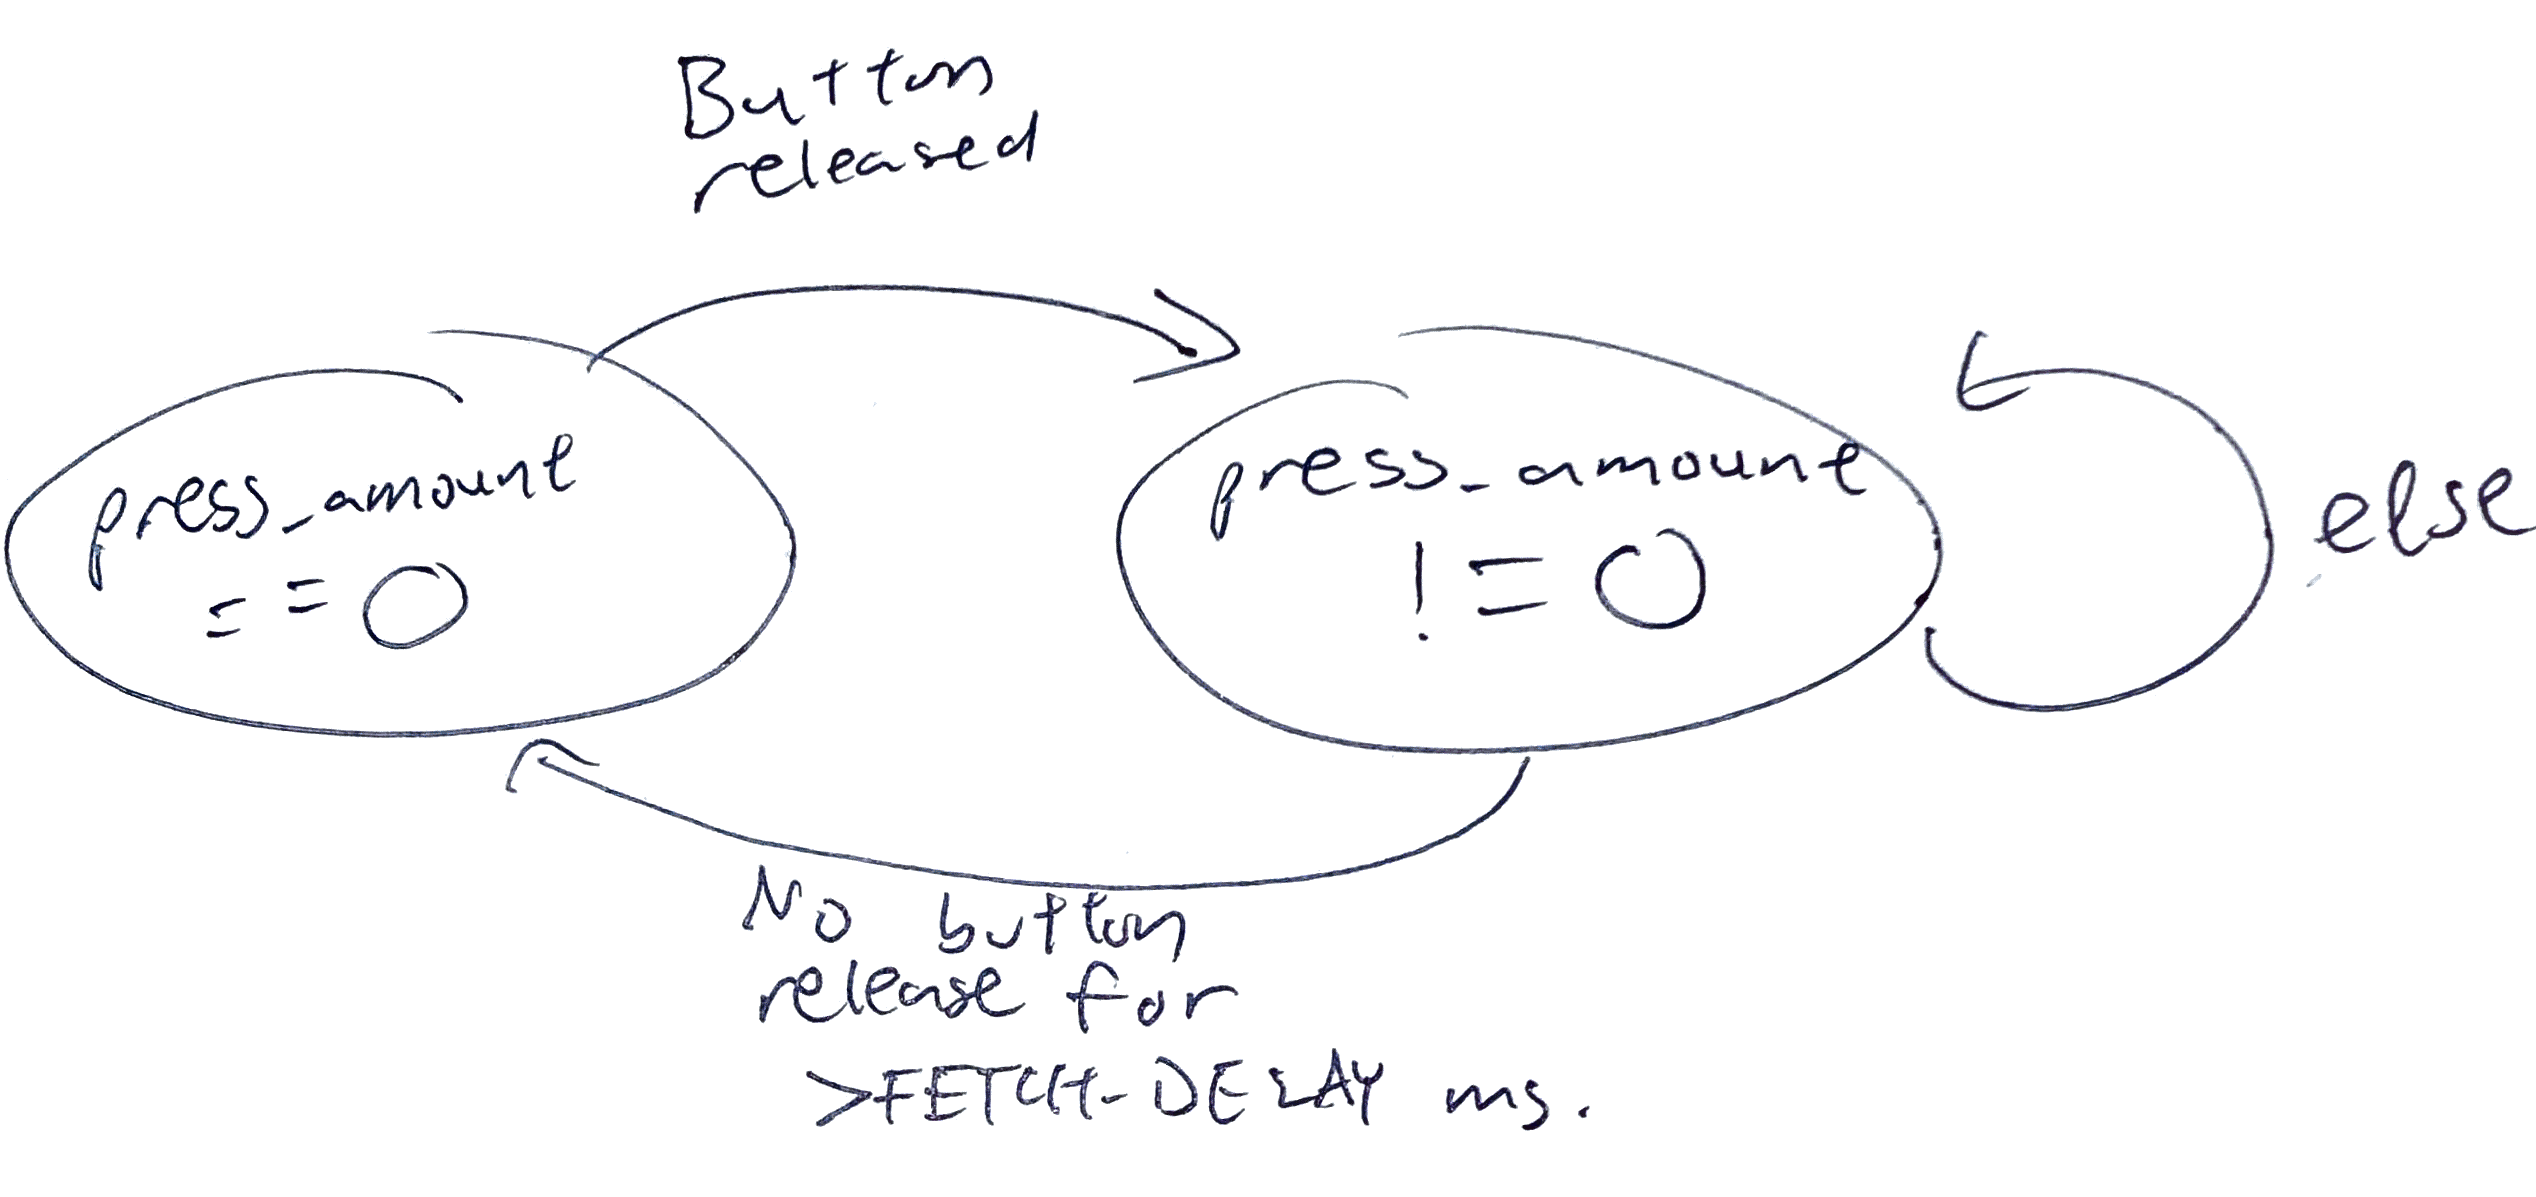 Button
released
press_amount
==0
press_amount
!=0
else
No button
release for
>FETCH-DELAY ms.